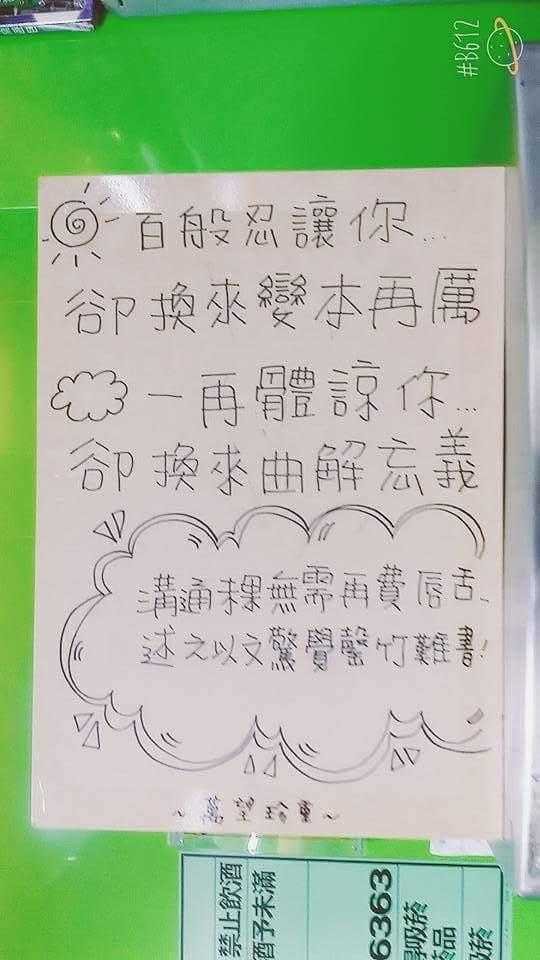 #B612
百般忍讓你...
卻換來變本再厲
一再體諒你...
卻換來曲解忘義
溝通粿無需再費唇舌、
述之以文驚覺罄竹難書!
~萬望珍重~
禁止飲酒
酒予未滿
6363
尋吸菸
菸品
吸菸